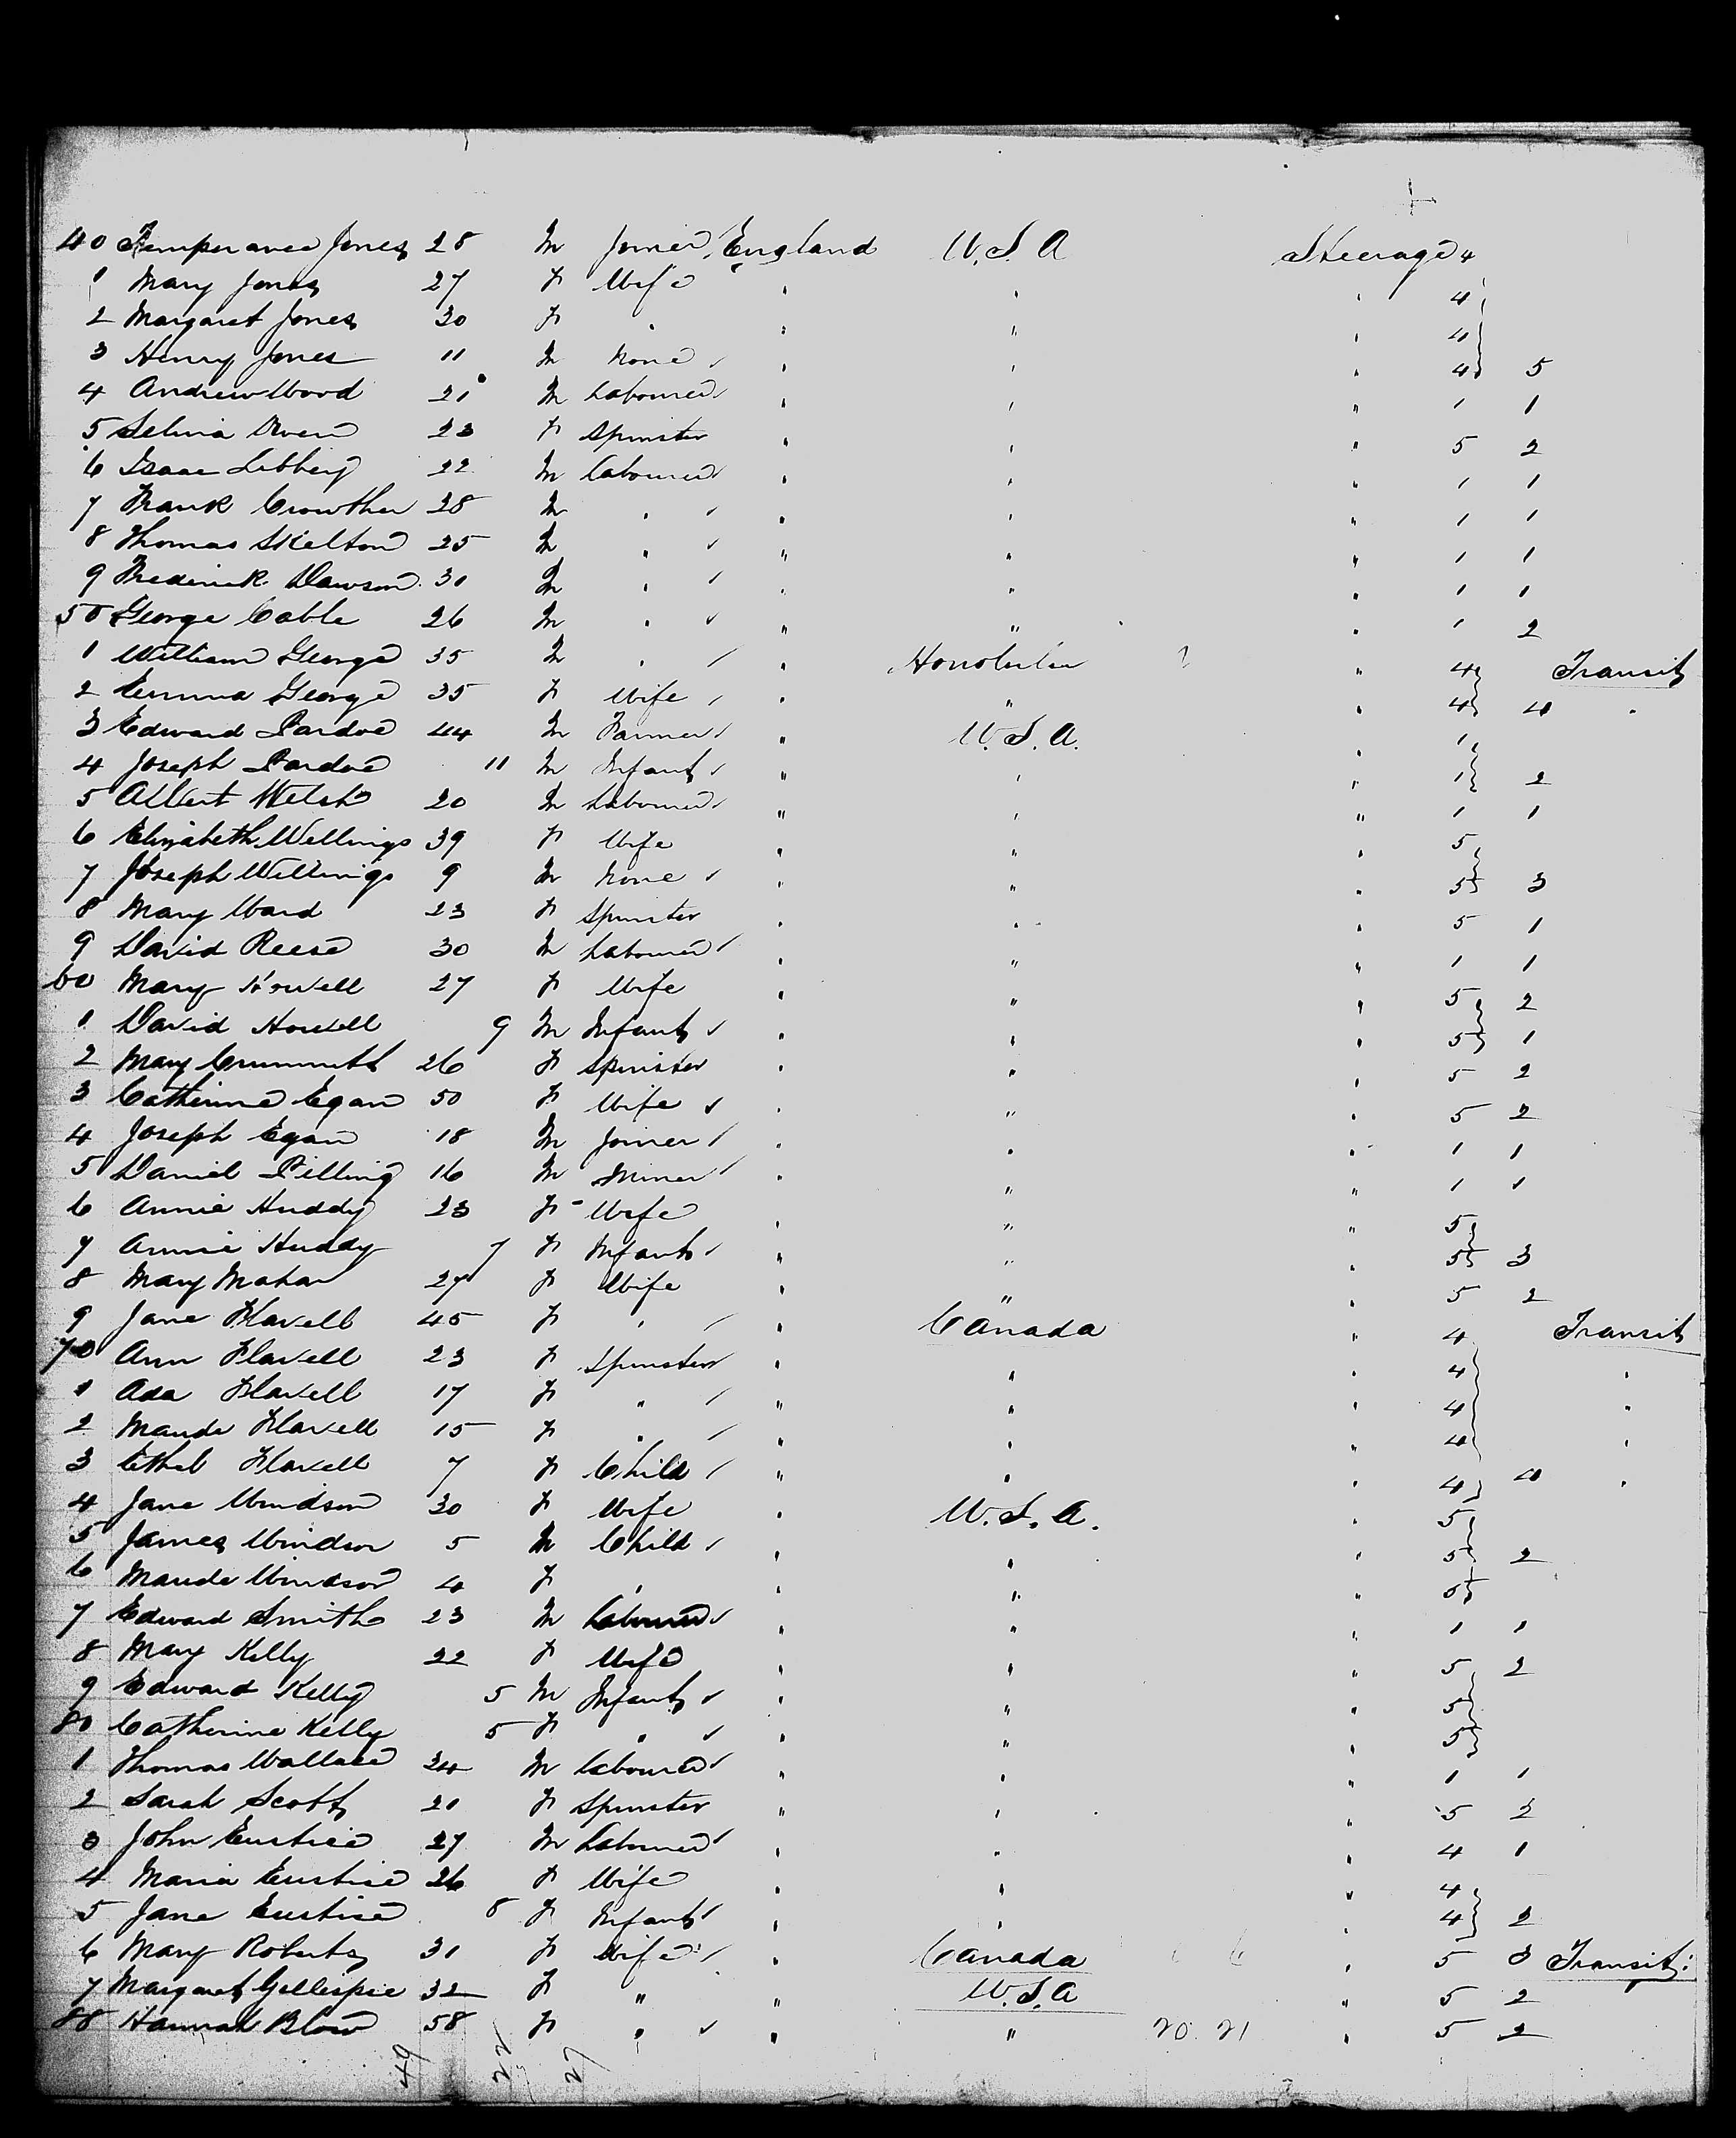 40 Temperance Jones 28 M Joiner England U.S.A Steerage 4
1 Mary Jones 27 F Wife " " " 4
2 Margaret Jones 30 F " " " " 4
3 Henry Jones 11 M None " " " 4 5
4 Andrew Wood 21 M Labourer " " " 1 1
5 Selina Owen 23 F Spinster " " " 5 2
6 Isaac Libbey 22 M Labourer " " " 1 1
7 Frank Crowther 28 M " " " " 1 1
8 Thomas Skelton 25 M " " " " 1 1
9 Frederick Dawson 30 M " " " " 1 1
50 George Cable 26 M " " " " 1 2
1 William George 35 M " " Honolulu " 4 Transit
2 Emma George 35 F Wife " " " 4 4 "
3 Edward Pardoe 44 M Farmer " U.S.A. " 1
4 Joseph Pardoe 11 M Infant " " " 1 2
5 Albert Welsh 20 M Labourer " " " 1 1
6 Elizabeth Wellings 39 F Wife " " " 5
7 Joseph Wellings 9 M None " " " 5 3
8 Mary Ward 23 F Spinster " " " 5 1
9 David Reese 30 M Labourer " " " 1 1
60 Mary Howell 27 F Wife " " " 5 2
1 David Howell 9 M Infant " " " 5 1
2 Mary 26 F Spinster " " " 5 2
3 Catherine Egan 50 F Wife " " " 5 2
4 Joseph Egan 18 M Joiner " " " 1 1
5 Daniel Pilling 16 M Miner " " " 1 1
6 Annie Huddy 23 F Wife " " " 5
7 Annie Huddy 7 F Infant " " " 5 3
8 Mary Mahar 27 F Wife " " " 5 2
9 Jane Flavell 45 F " " Canada " 4 Transit
70 Ann Flavell 23 F Spinster " " " 4 "
1 Ada Flavell 17 F " " " " 4 "
2 Maude Flavell 15 F " " " " 4 "
3 Ethel Flavell 7 F Child " " " 4 4 "
4 Jane Windsor 30 F Wife " U.S.A. " 5
5 James Windsor 5 M Child " " " 5 2
6 Maude Windsor 4 F " " " " 5
7 Edward Smith 23 M Labourer " " " 1 1
8 Mary Kelly 22 F Wife " " " 5 2
9 Edward Kelly 5 M Infant " " " 5
80 Catherine Kelly 5 F " " " " 5
1 Thomas Wallace 24 M Labourer " " " 1 1
2 Sarah Scott 21 F Spinster " " " 5 2
3 John Eustice 27 M Labourer " " " 4 1
4 Maria Eustice 26 F Wife " " " 4
5 Jane Eustice 8 F Infant " " " 4 2
6 Mary Roberts 31 F Wife " Canada " 5 3 Transit:
7 Margaret Gillespie 32 F " " U.S.A " 5 2
88 Hannah Blow 58 F " " " 20 21 " 5 2
49 22 27